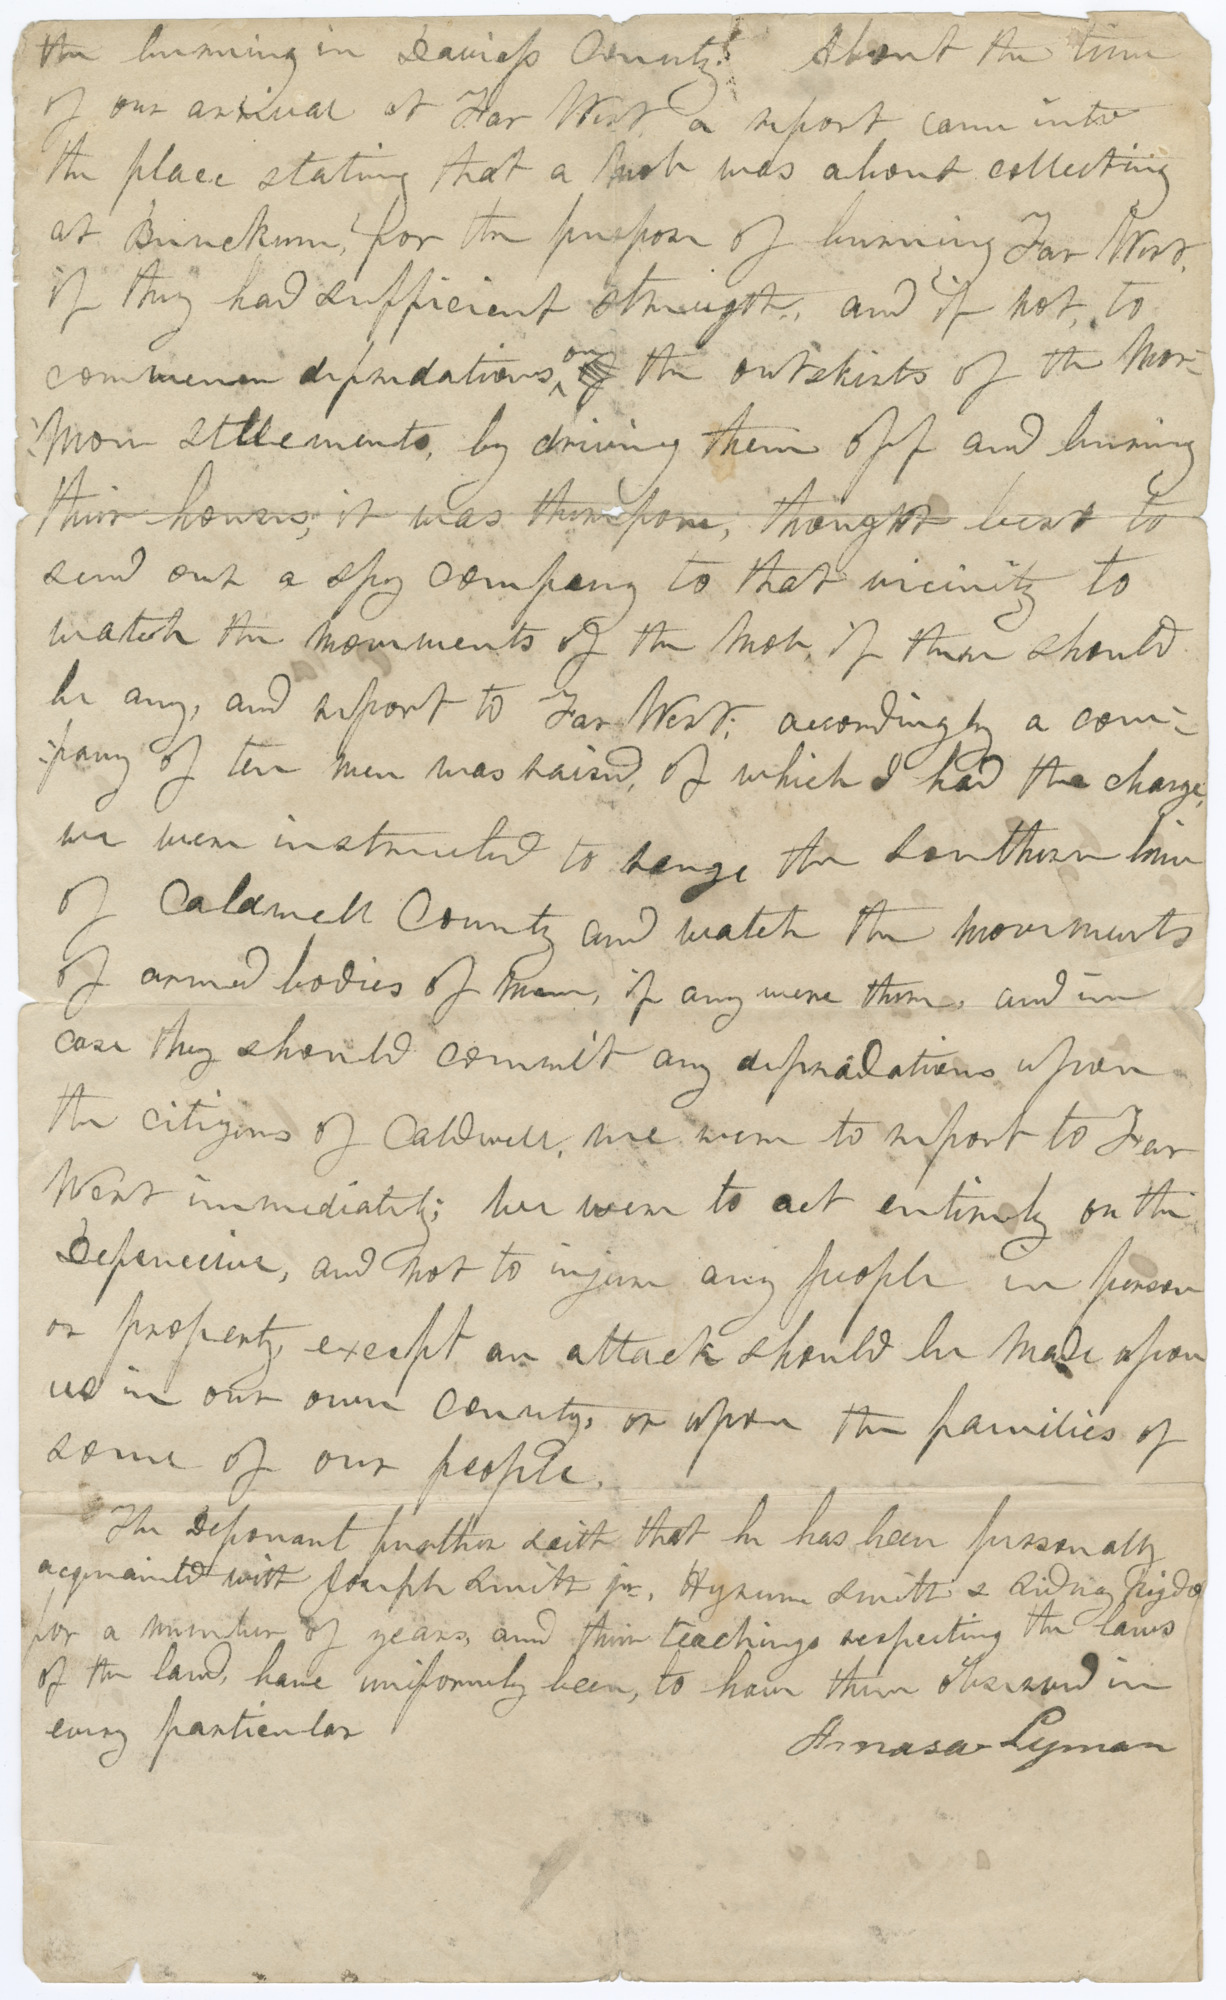 the burning in Daviess County." About the time
of our arrival at Far West, a report came into
the place stating that a mob was about collecting
at Bunckum, for the purpose of burning Far West,
if they had sufficient strength, and if not, to
commence depredations on the outskirts of the Mor=
=mon settlements, by driving them off and burning
their houses; it was therefore, thought best to
send out a spy company to that vicinity to
watch the movements of the mob, if there should
be any, and report to Far West; accordingly a com=
=pany of ten men was raised, of which I had the charge,
we were instructed to range the Southern line
of Caldwell County and watch the movements
of armed bodies of men, if any were there, and in
case they should commit any depredations upon
the citizens of Caldwell, we were to report to Far
West immediately; we were to act entirely on the
Defensive, and not to injure any people in person
or property, except an attack should be made upon
us in our own county, or upon the families of
some of our people.
The Deponant further saith that he has been personally
acquainted with Joseph Smith jr., Hyrum Smith & Sidney Rigdo
for a number of years, and their teachings respecting the laws
of the land, have uniformly been, to have them observed in
every particular
Amasa Lyman